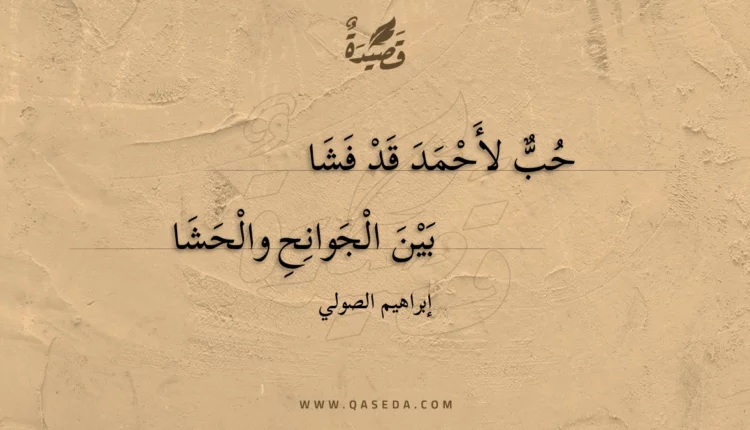 قَصِيدَةٌ
حُبٌّ لأَحْمَدَ قَدْ فَشَا
بَيْنَ الْجَوانِحِ والْحَشَا
إبراهيم الصولي
WWW.QASEDA.COM